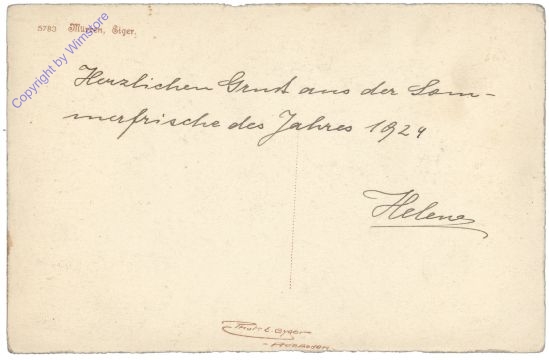 5783 Mürren, Eiger.
Copyright by Wimstore
Herzlichen Gruß aus der Som-
merfrische des Jahres 1924
Helene
Phot. E. Gyger
Adelboden